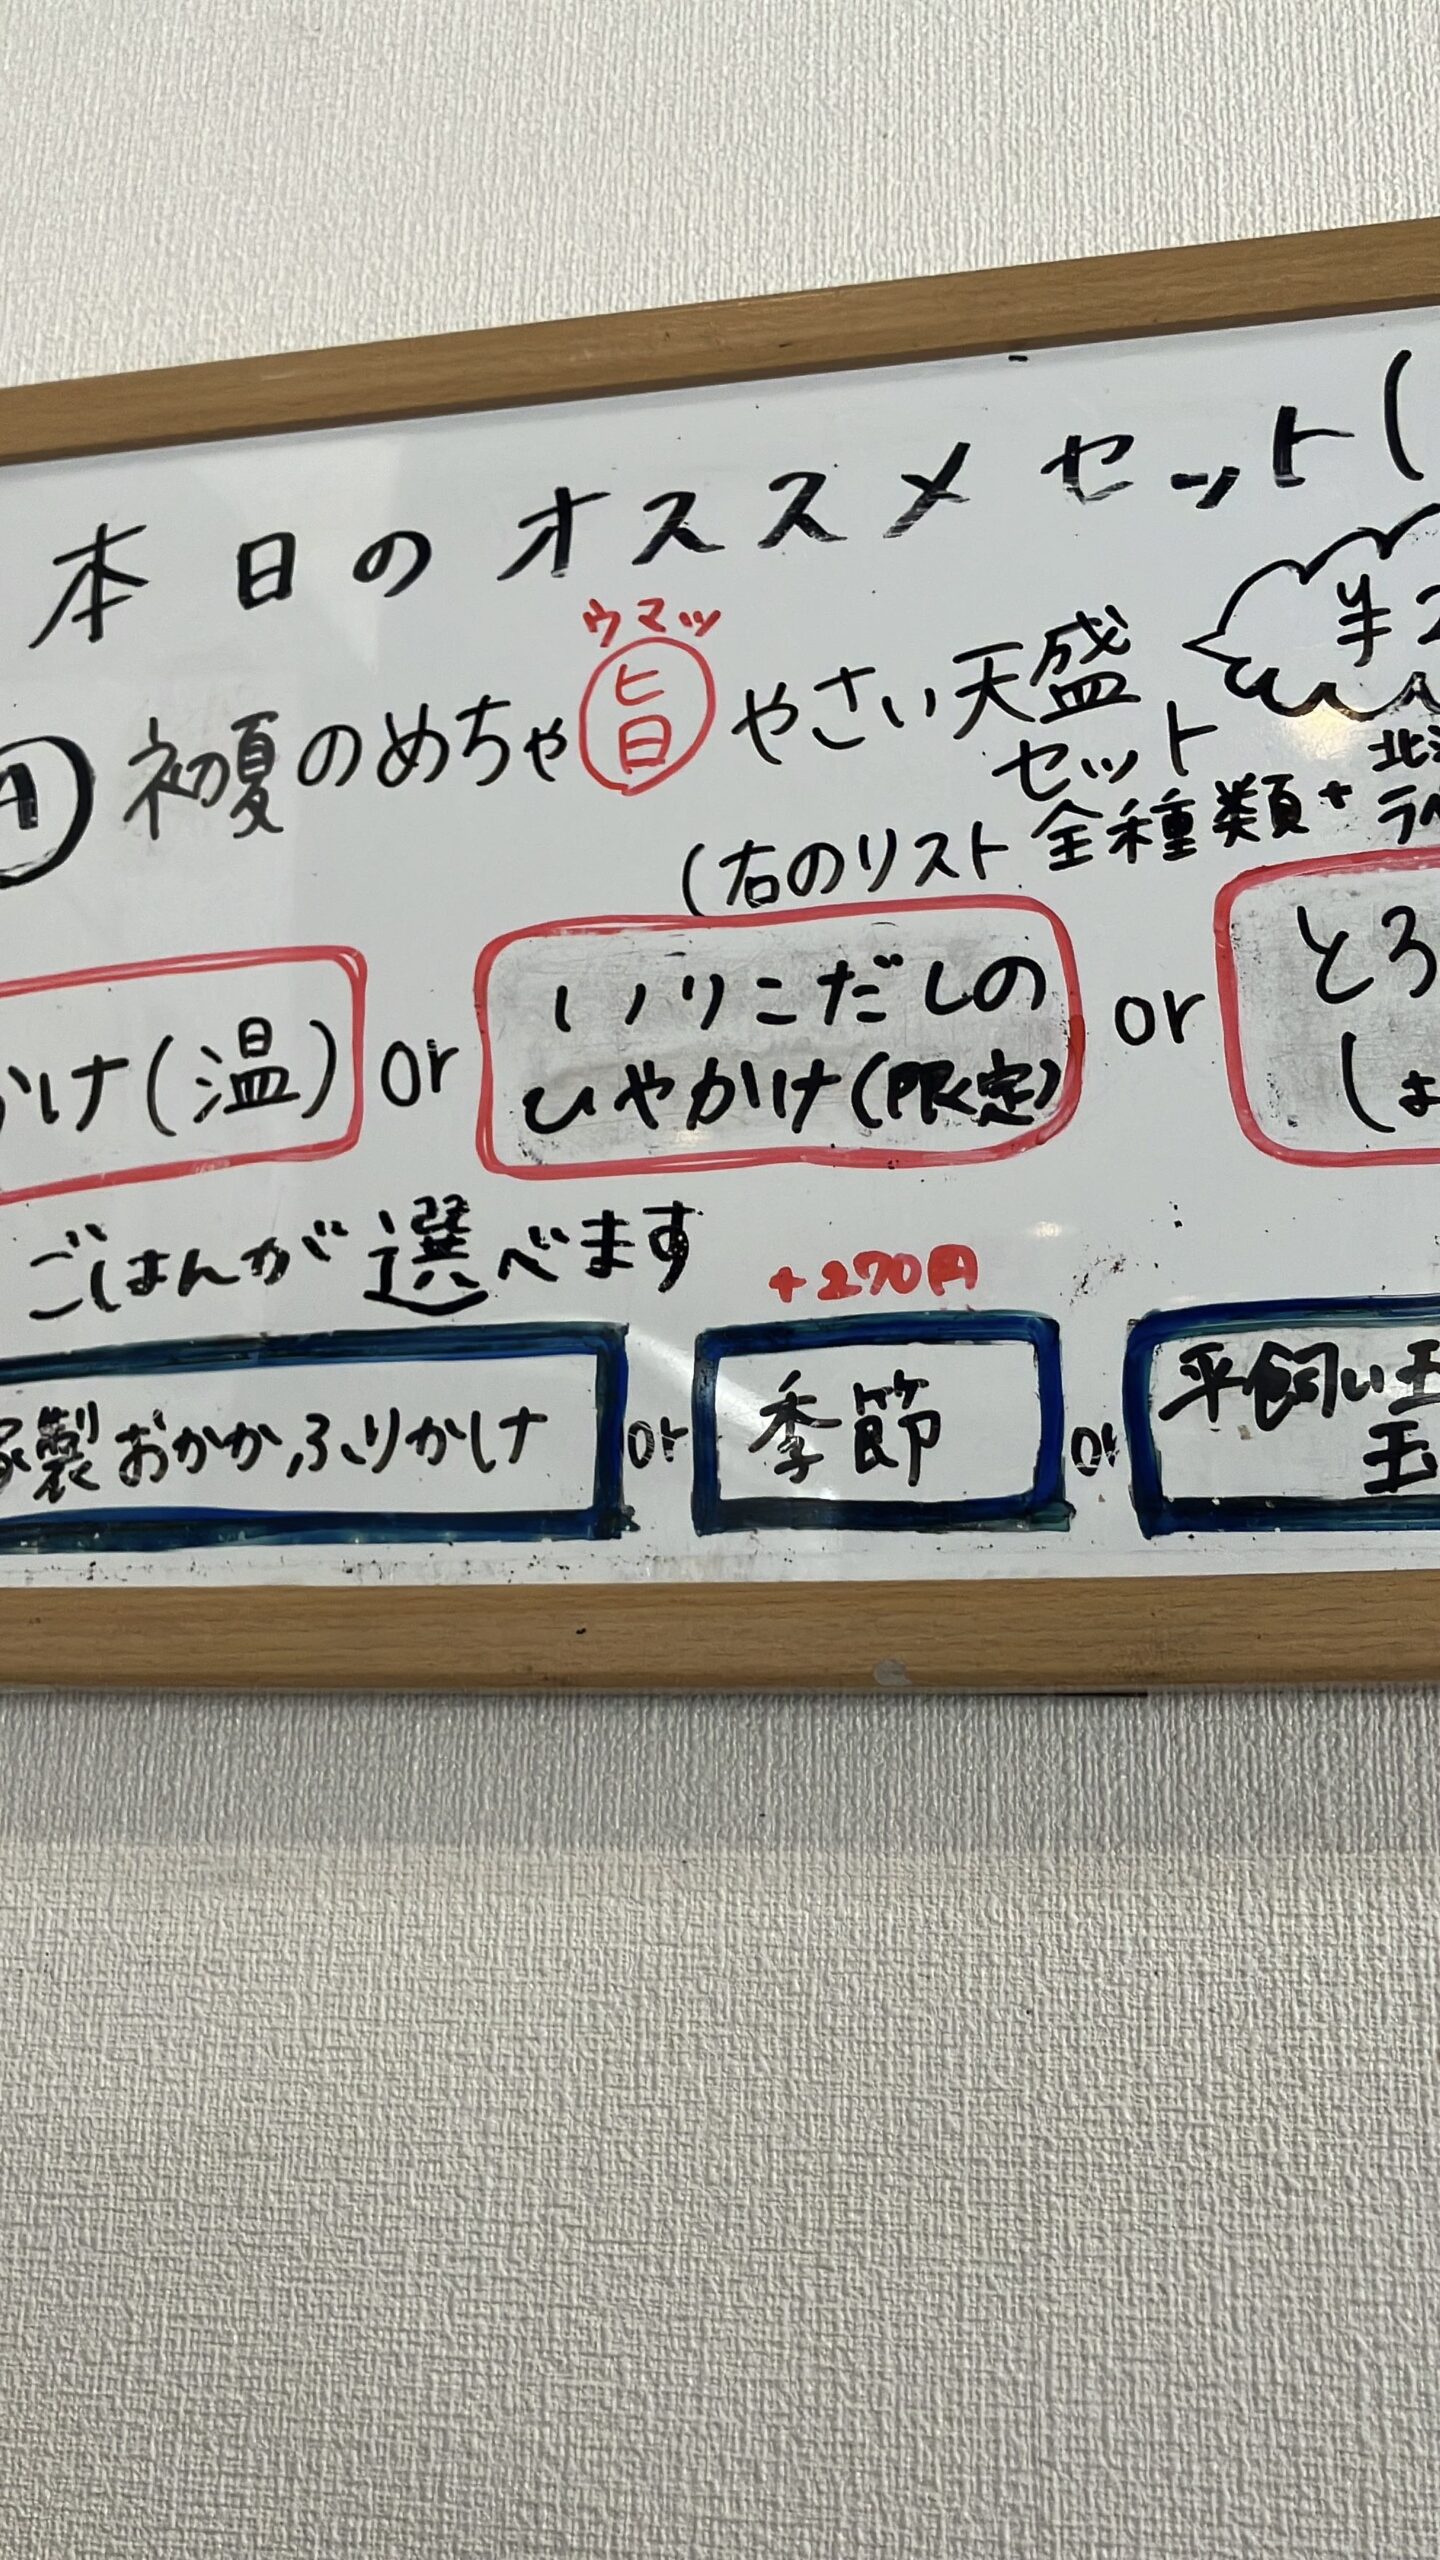 本日のオススメセット(
ウマッ
初夏のめちゃ旨やさい天盛
セット
(右のリスト 全種類+
かけ(温) or いりこだしの or とろ
ひやかけ(限定) しょ
ごはんが選べます
+270円
家製おかかふりかけ or 季節 or 平飼い
玉